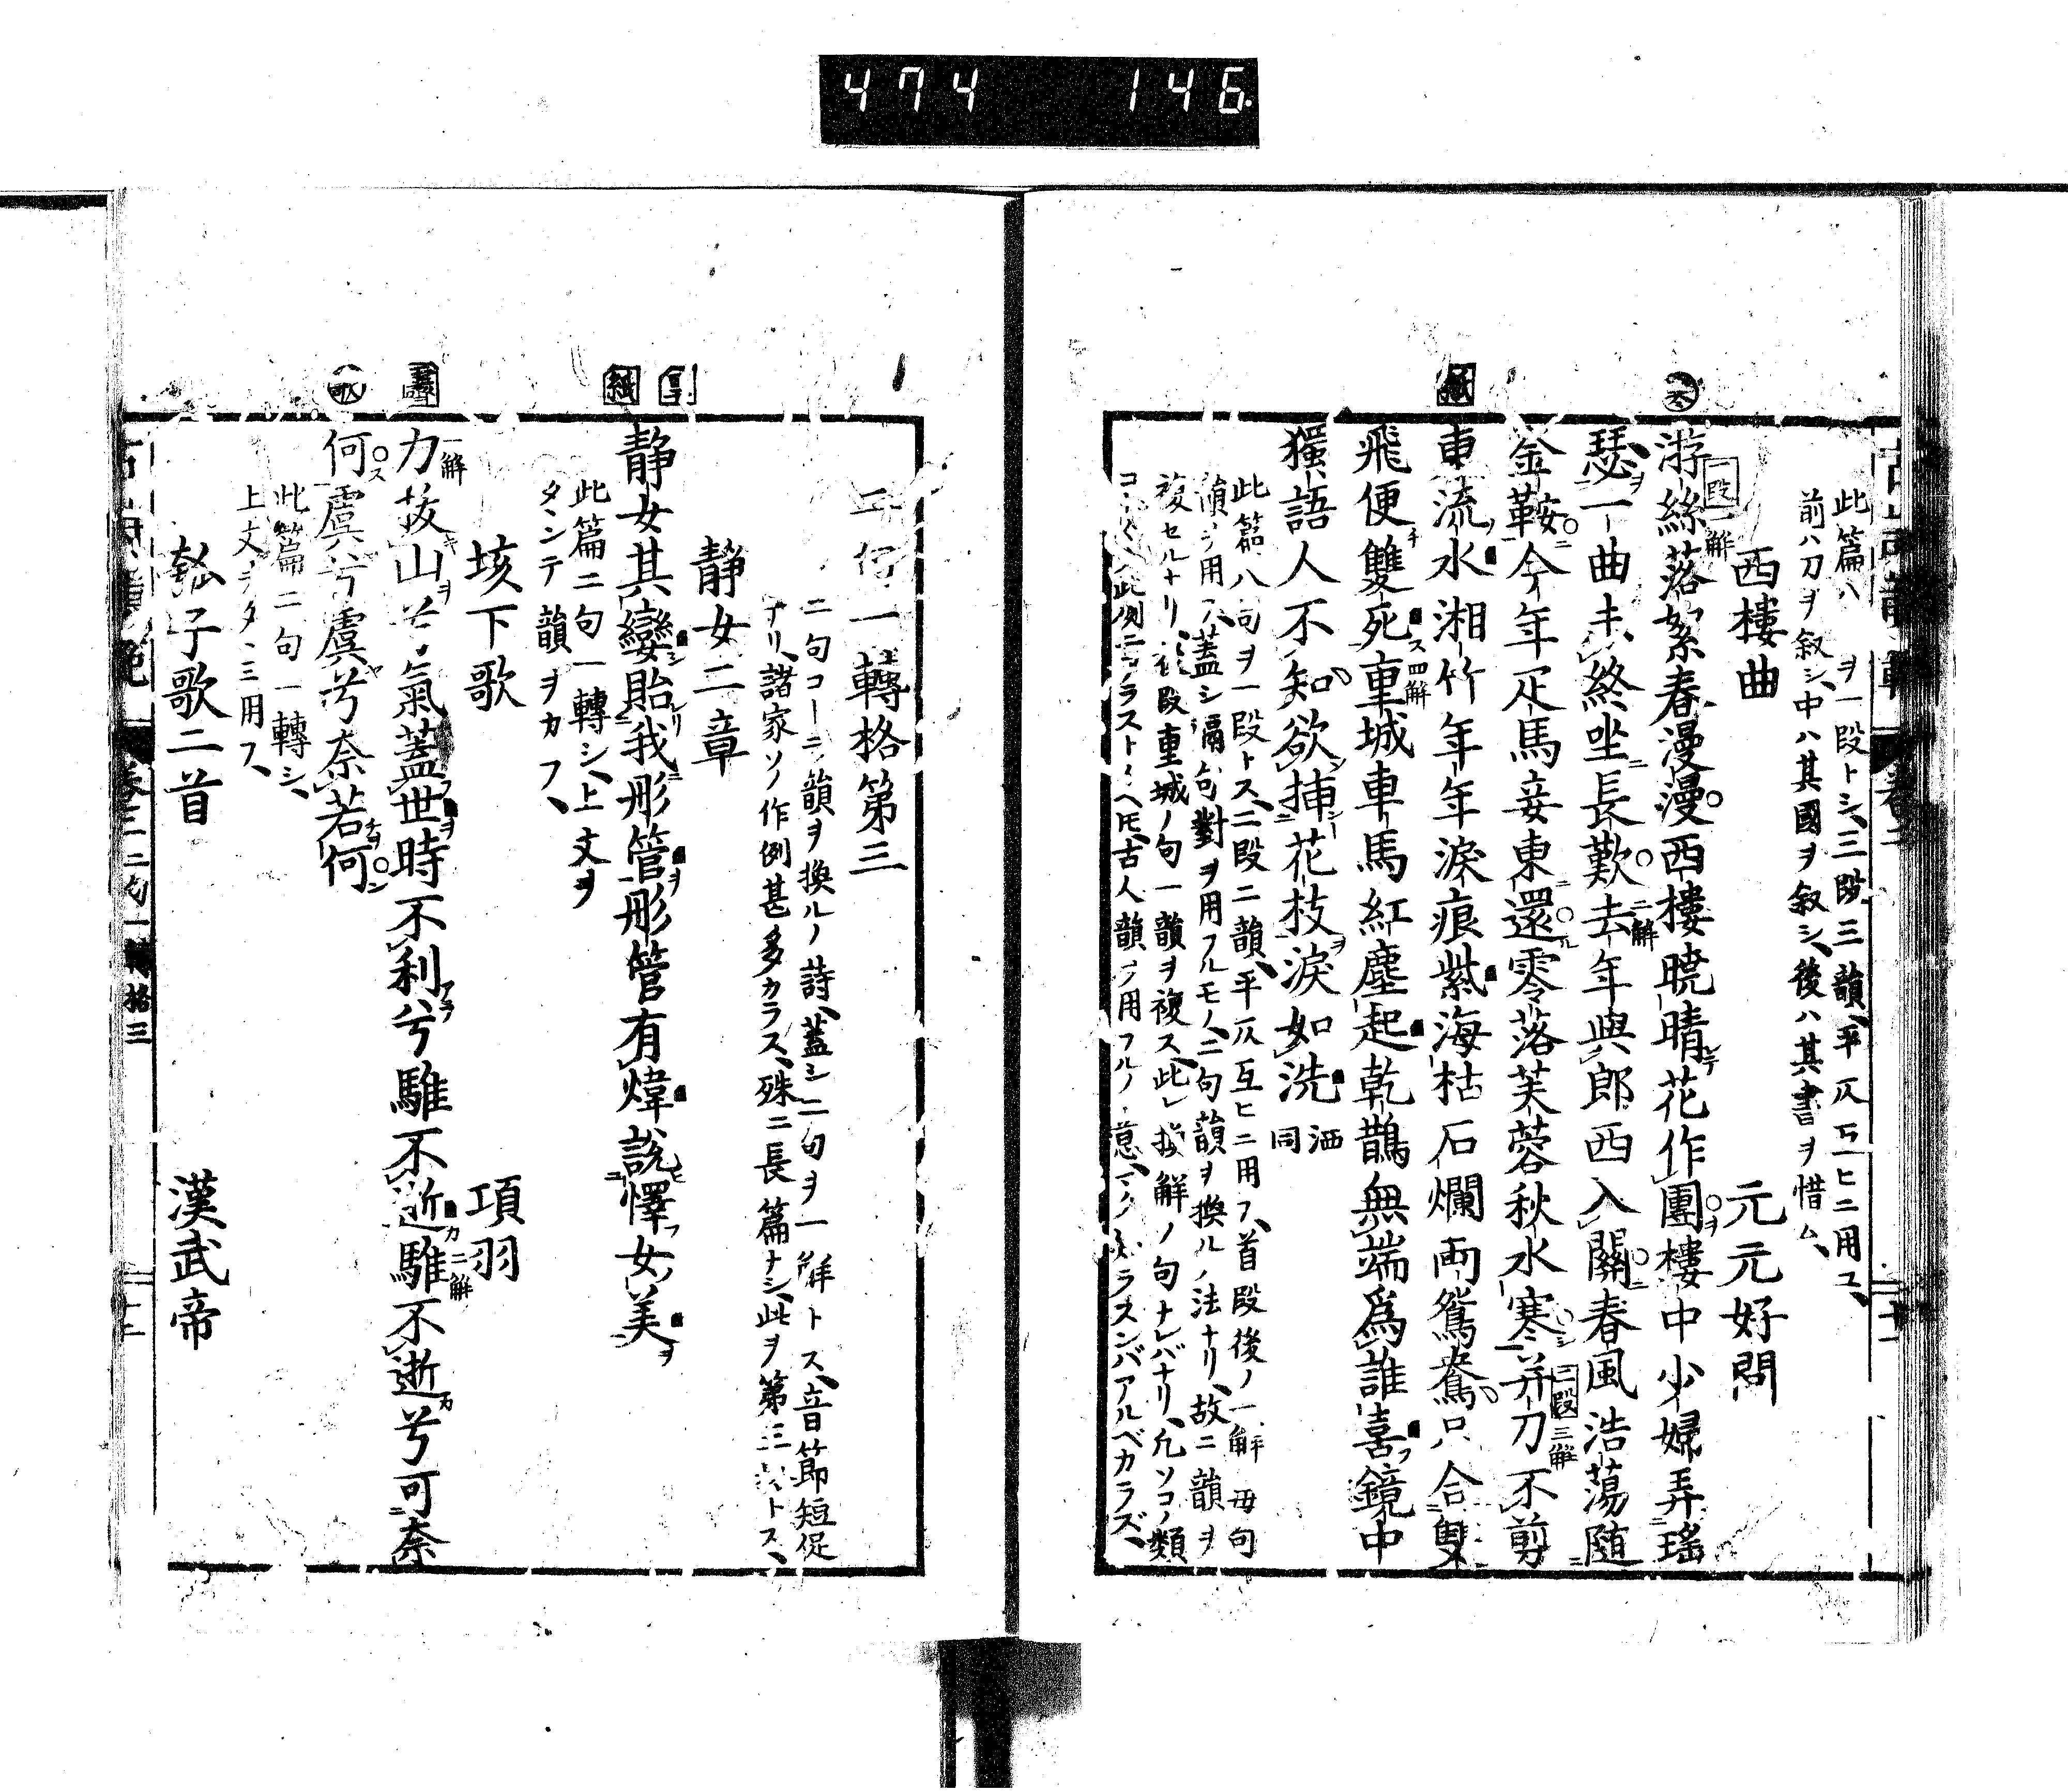 474 146
此篇ハ ヲ一段トシ、三段三韻、平仄互ヒニ用ユ、
前ハ刀ヲ叙シ、中ハ其國ヲ叙シ、後ハ其書ヲ惜ム、
西樓曲 元元好問
一段 一解
游絲落絮春漫漫西樓曉晴花作團樓中少婦弄瑤
瑟一曲未終坐長歎 二解 去年與郎西入關春風浩蕩隨
金鞍今年疋馬妾東還零落芙蓉秋水寒 二段 三解 并刀不剪
東流水湘竹年年淚痕紫海枯石爛兩鴛鴦只合雙
飛便雙死 四解 重城車馬紅塵起乾鵲無端爲誰喜鏡中
獨語人不知欲揷花枝淚如洗 洒同
此篇八句ヲ一段トス、二段二韻、平仄互ヒニ用フ、首段後ノ一解毎句
韻ヲ用フ、蓋シ隔句對ヲ用フルモノ、二句韻ヲ換ルノ法ナリ、故ニ韻ヲ
複セルナリ、後段重城ノ句一韻ヲ複ス、此レ換解ノ句ナレバナリ、凡ソコノ類
古人韻ヲ用フルノ意、シラズンバアルベカラズ、
二句一轉格第三
二句コトニ韻ヲ換ルノ詩、蓋シ二句ヲ一解トス、音節短促
ナリ、諸家ソノ作例甚多カラス、殊ニ長篇ナシ、此ヲ第三トス、
靜女二章
靜女其孌貽我彤管彤管有煒說懌女美
此篇二句一轉シ、上文ヲ
タヽンテ韻ヲカフ、
垓下歌 項羽
一解
力拔山兮氣蓋世時不利兮騅不逝 二解 騅不逝兮可奈
何虞兮虞兮奈若何
此篇二句一轉シ、
上文ヲタヽミ用フ、
瓠子歌二首 漢武帝
卷二 二句一轉格三